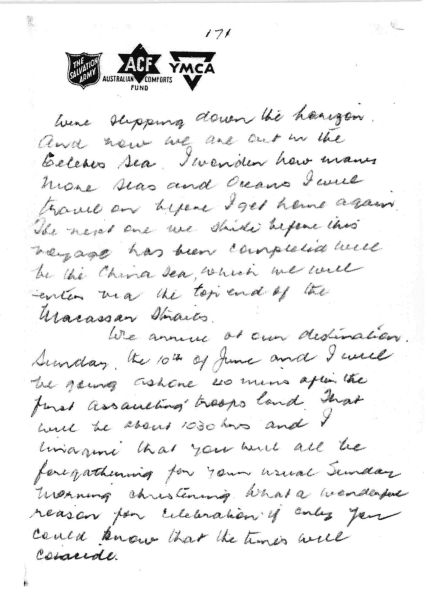 171
THE
SALVATION
ARMY
ACF
AUSTRALIAN COMFORTS
FUND
YMCA
were slipping down the horizon.
And now we are out in the
Celebes Sea. I wonder how many
more seas and oceans I will
travel on before I get home again.
The next one we strike before this
voyage has been completed will
be the China Sea, which we will
enter via the top end of the
Macassar Straits.
We arrive at our destination
Sunday, the 10th of June and I will
be going ashore 40 mins after the
first assaulting troops land. That
will be about 1030 hrs and I
imagine that you will all be
foregathering for your usual Sunday
morning christening. What a wonderful
reason for celebration if only you
could know that the times will
coincide.